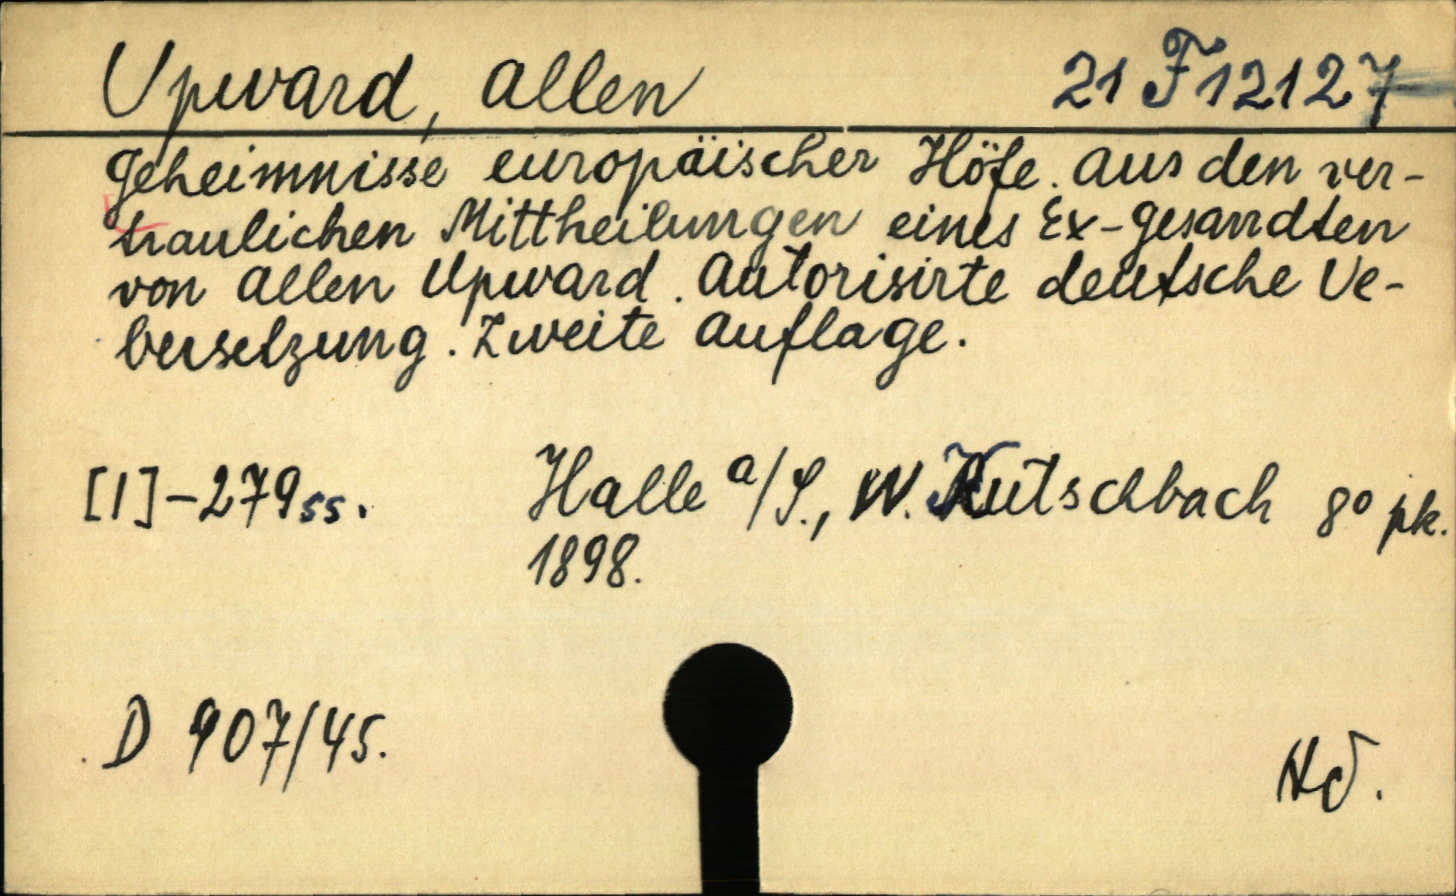 Upward, Allen 21 F 12127
Geheimnisse europäischer Höfe. Aus den ver-
traulichen Mittheilungen eines Ex-Gesandten
von Allen Upward. Autorisirte deutsche Ue-
bersetzung. Zweite Auflage.
[1]-279 ss. Halle a/S., W. Kutschbach 8° pk.
1898.
D 907/45. Hd.